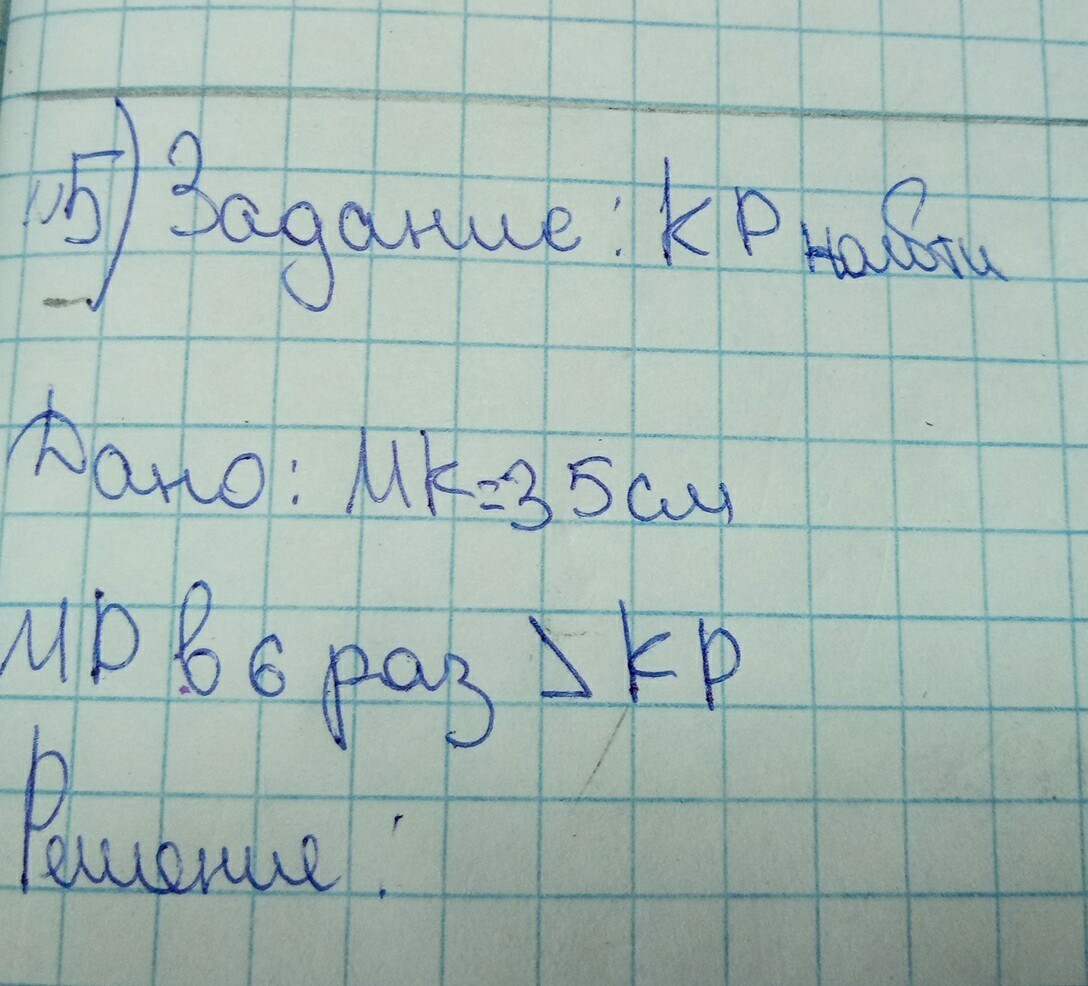 №5) Задание: KP найти
Дано: MK=35см
MP в 6 раз > KP
Решение: